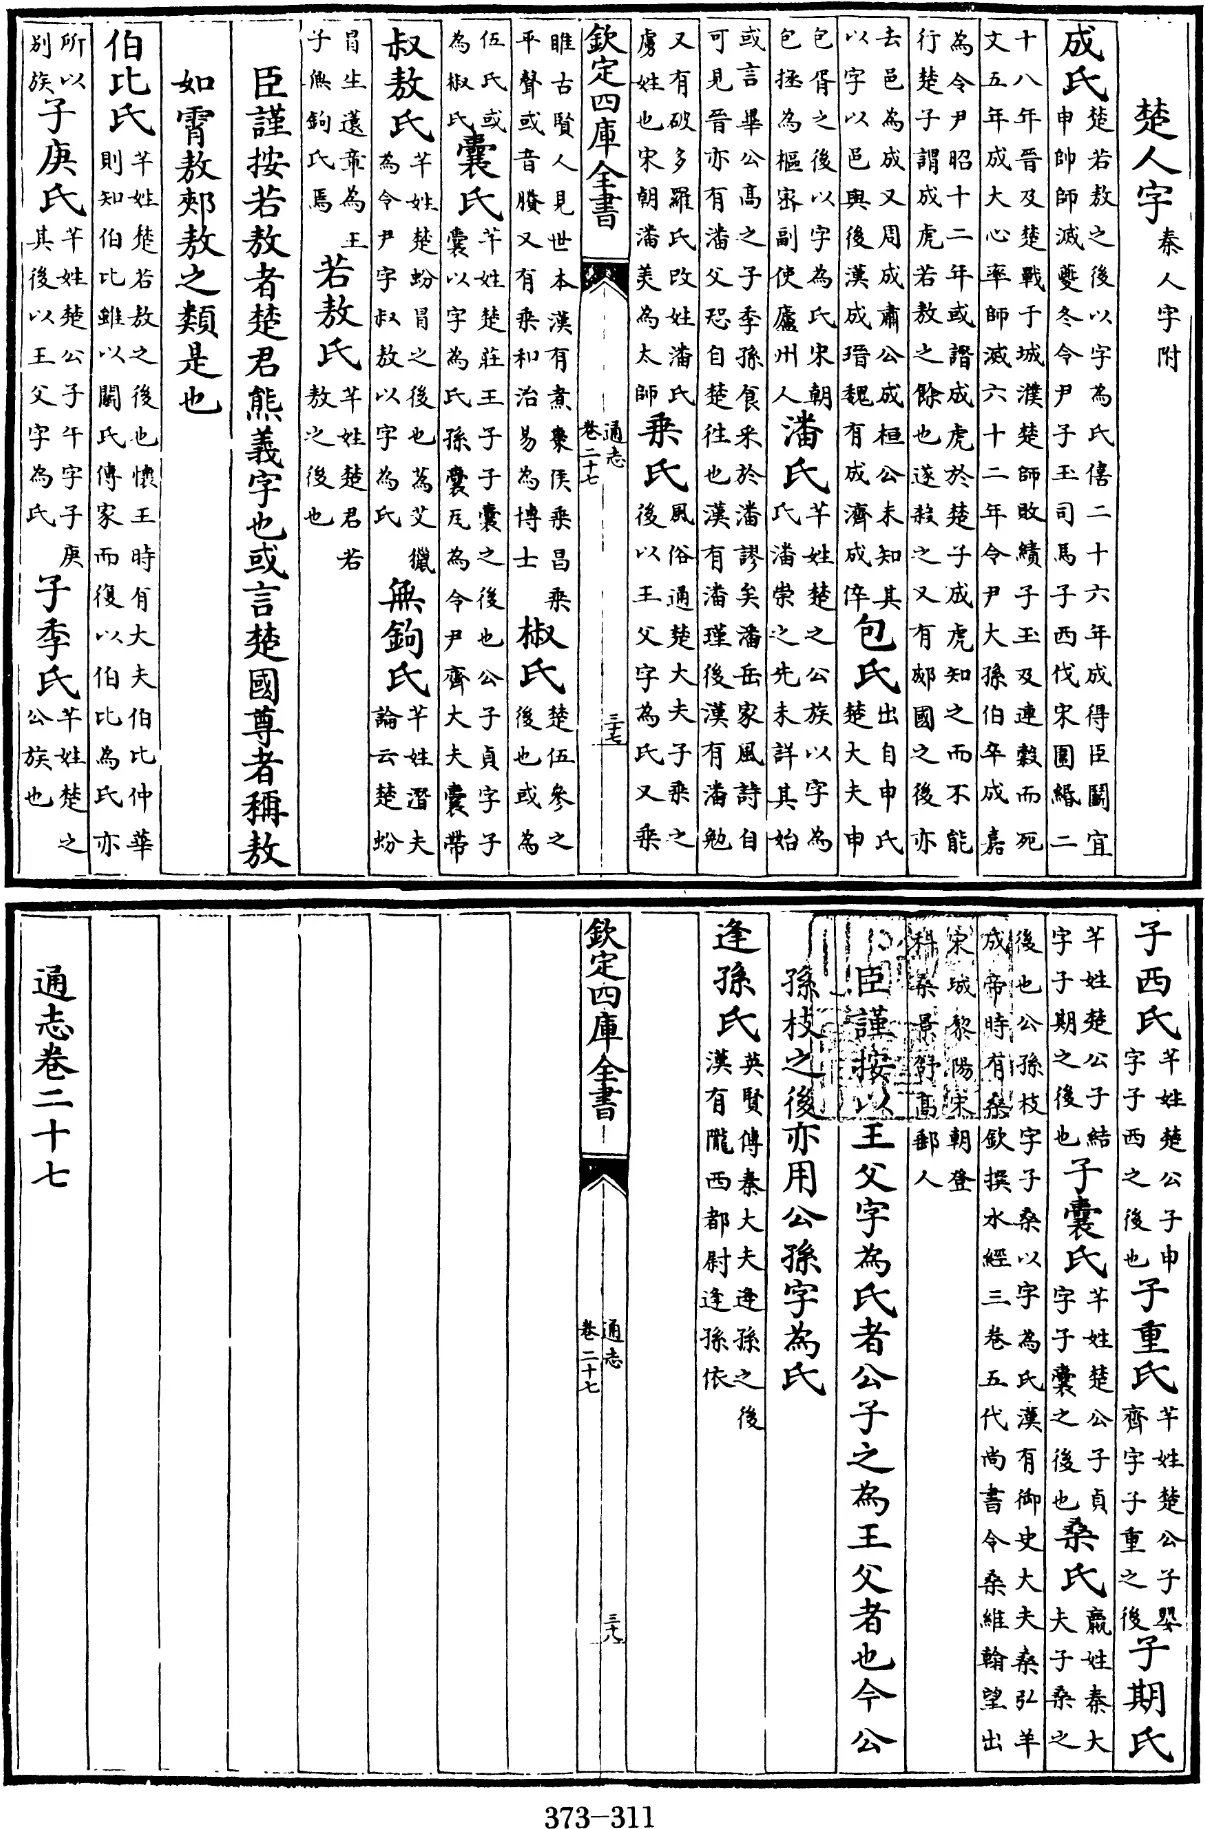 楚人字秦人字附
成氏楚若敖之後以字為氏僖二十六年成得臣鬬宜
申帥師滅夔冬令尹子玉司馬子西伐宋圍緡二
十八年晉及楚戰于城濮楚師敗績子玉及連穀而死
文五年成大心率師滅六十二年令尹大孫伯卒成嘉
為令尹昭十二年或譖成虎於楚子成虎知之而不能
行楚子謂成虎若敖之餘也遂殺之又有郕國之後亦
去邑為成又周成肅公成桓公未知其
以字以邑與後漢成瑨魏有成濟成倅
包氏出自申氏
楚大夫申
包胥之後以字為氏宋朝
包拯為樞密副使廬州人
潘氏芊姓楚之公族以字為
氏潘崇之先未詳其始
或言畢公髙之子季孫食采於潘謬矣潘岳家風詩自
可見晉亦有潘父恐自楚往也漢有潘瑾後漢有潘勉
又有破多羅氏改姓潘氏
虜姓也宋朝潘美為太師
乗氏風俗通楚大夫子乗之
後以王父字為氏又乗
欽定四庫全書
通志
卷二十七
三十七
雎古賢人見世本漢有煮棗侯乗昌乗
平聲或音賸又有乗和治易為博士
椒氏楚伍參之
後也或為
伍氏或
為椒氏
囊氏芊姓楚莊王子子囊之後也公子貞字子
囊以字為氏孫囊瓦為令尹齊大夫囊帶
叔敖氏芊姓楚蚡冒之後也蒍艾獵
為令尹字叔敖以字為氏
無鉤氏芊姓潛夫
論云楚蚡
冒生蒍章為王
子無鉤氏焉
若敖氏芊姓楚君若
敖之後也
臣謹按若敖者楚君熊義字也或言楚國尊者稱敖
如霄敖郟敖之類是也
伯比氏芊姓楚若敖之後也懷王時有大夫伯比仲華
則知伯比雖以鬬氏傳家而復以伯比為氏亦
所以
別族
子庚氏芊姓楚公子午字子庚
其後以王父字為氏
子季氏芊姓楚之
公族也
子西氏芊姓楚公子申
字子西之後也
子重氏芊姓楚公子嬰
齊字子重之後
子期氏
芊姓楚公子結
字子期之後也
子囊氏芊姓楚公子貞
字子囊之後也
桑氏嬴姓秦大
夫子桑之
後也公孫枝字子桑以字為氏漢有御史大夫桑弘羊
成帝時有桑欽撰水經三卷五代尚書令桑維翰望出
宋城黎陽宋朝登
科桑景舒髙郵人
臣謹按以王父字為氏者公子之為王父者也今公
孫枝之後亦用公孫字為氏
逢孫氏英賢傳秦大夫逢孫之後
漢有隴西都尉逢孫依
欽定四庫全書
通志
卷二十七
三十八
通志卷二十七
373-311